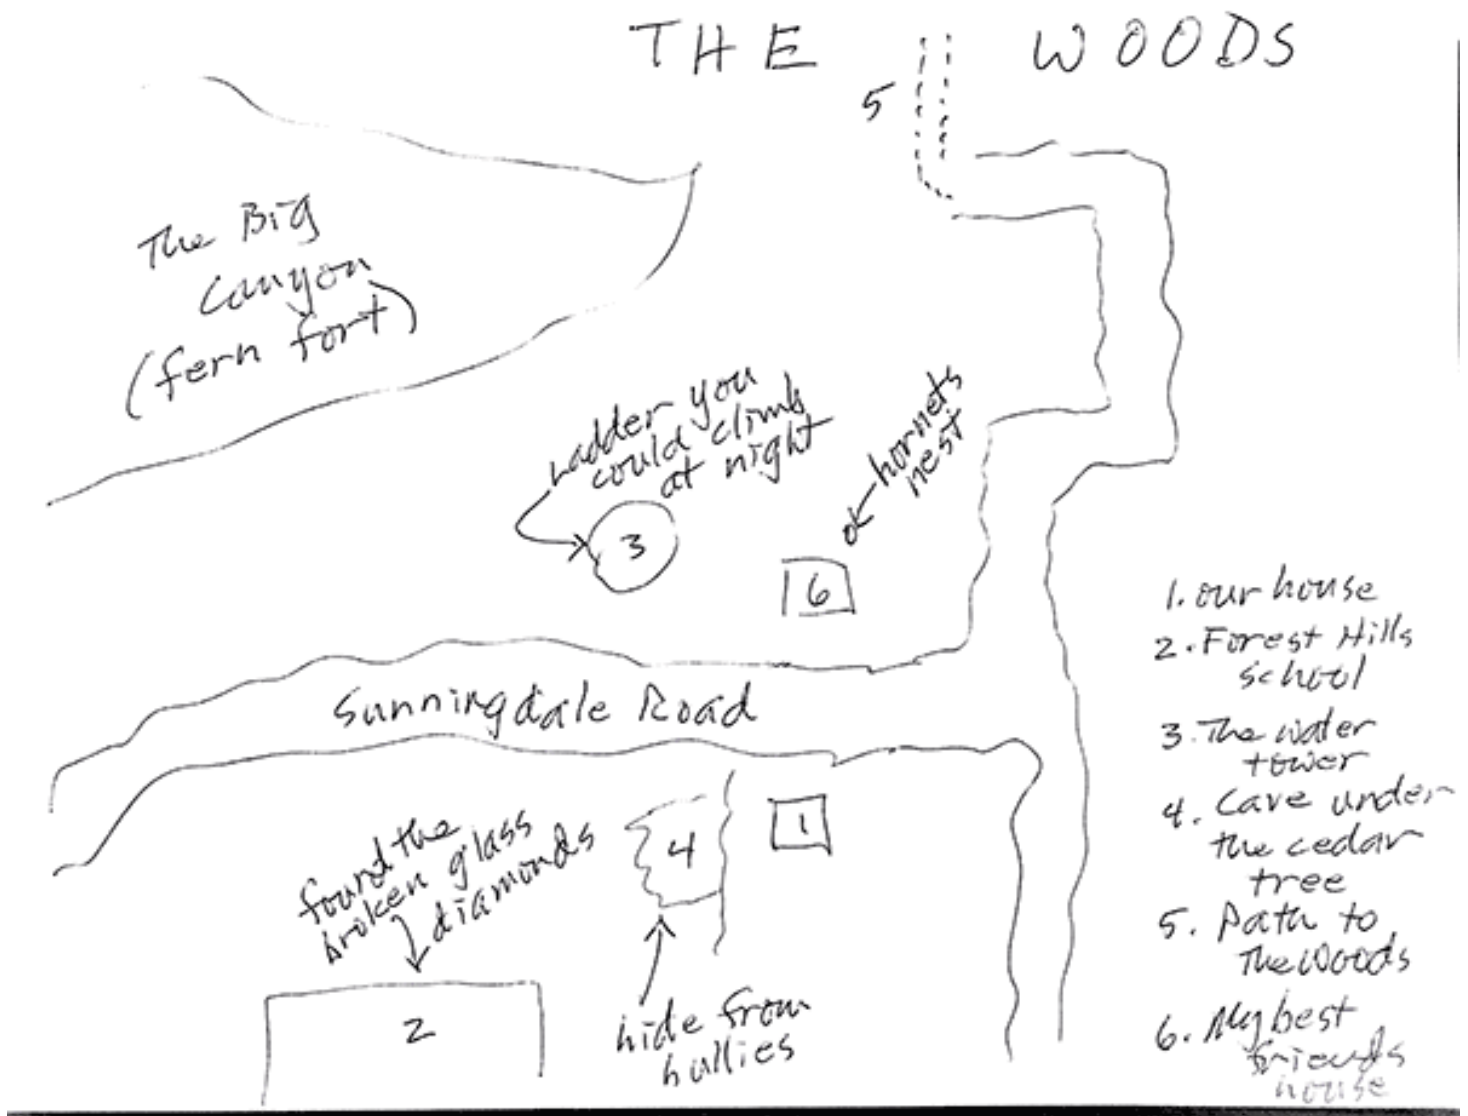 THE WOODS
5
The Big
Canyon
(fern fort)
Ladder you
could climb
at night
hornets
nest
3
6
Sunningdale Road
found the
broken glass
diamonds
4
1
2
hide from
bullies
1. our house
2. Forest Hills
school
3. The water
tower
4. Cave under
the cedar
tree
5. Path to
The Woods
6. My best
friends
house